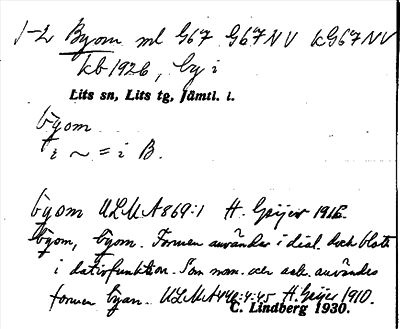 1-2 Byom ml G67 G67NV kG67NV
kb 1926, by i
Lits sn, Lits tg, Jämtl. l.
byom
i ~ = i B.
byom ULMA 869:1 H. Geijer 1916.
byom, byom. Formen användes i dial. dock blott
i dativfunktion. Som nom. och ack. användes
formen byan. ULMA 446:4:45 H. Geijer 1910.
C. Lindberg 1930.